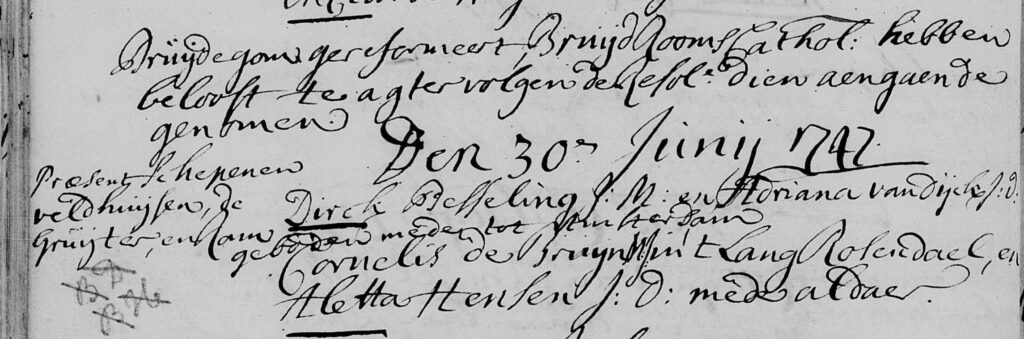 Bruijdegom gereformeert, Bruijd Rooms Cathol: hebben
belooft te agtervolgen de Resol:e dien aengaende
genomen
Den 30:n Junij 1747.
Præsent, Schepenen
veldhuijsen, de
Gruijter, en Cam
Dirck Besseling J: M: en Adriana van Dijck J: D:
geboden mede tot Amsterdam
Cornelis de Bruyn Wr in't Lang Rosendael, en
Aletta Hensen J: D: mede aldaer.